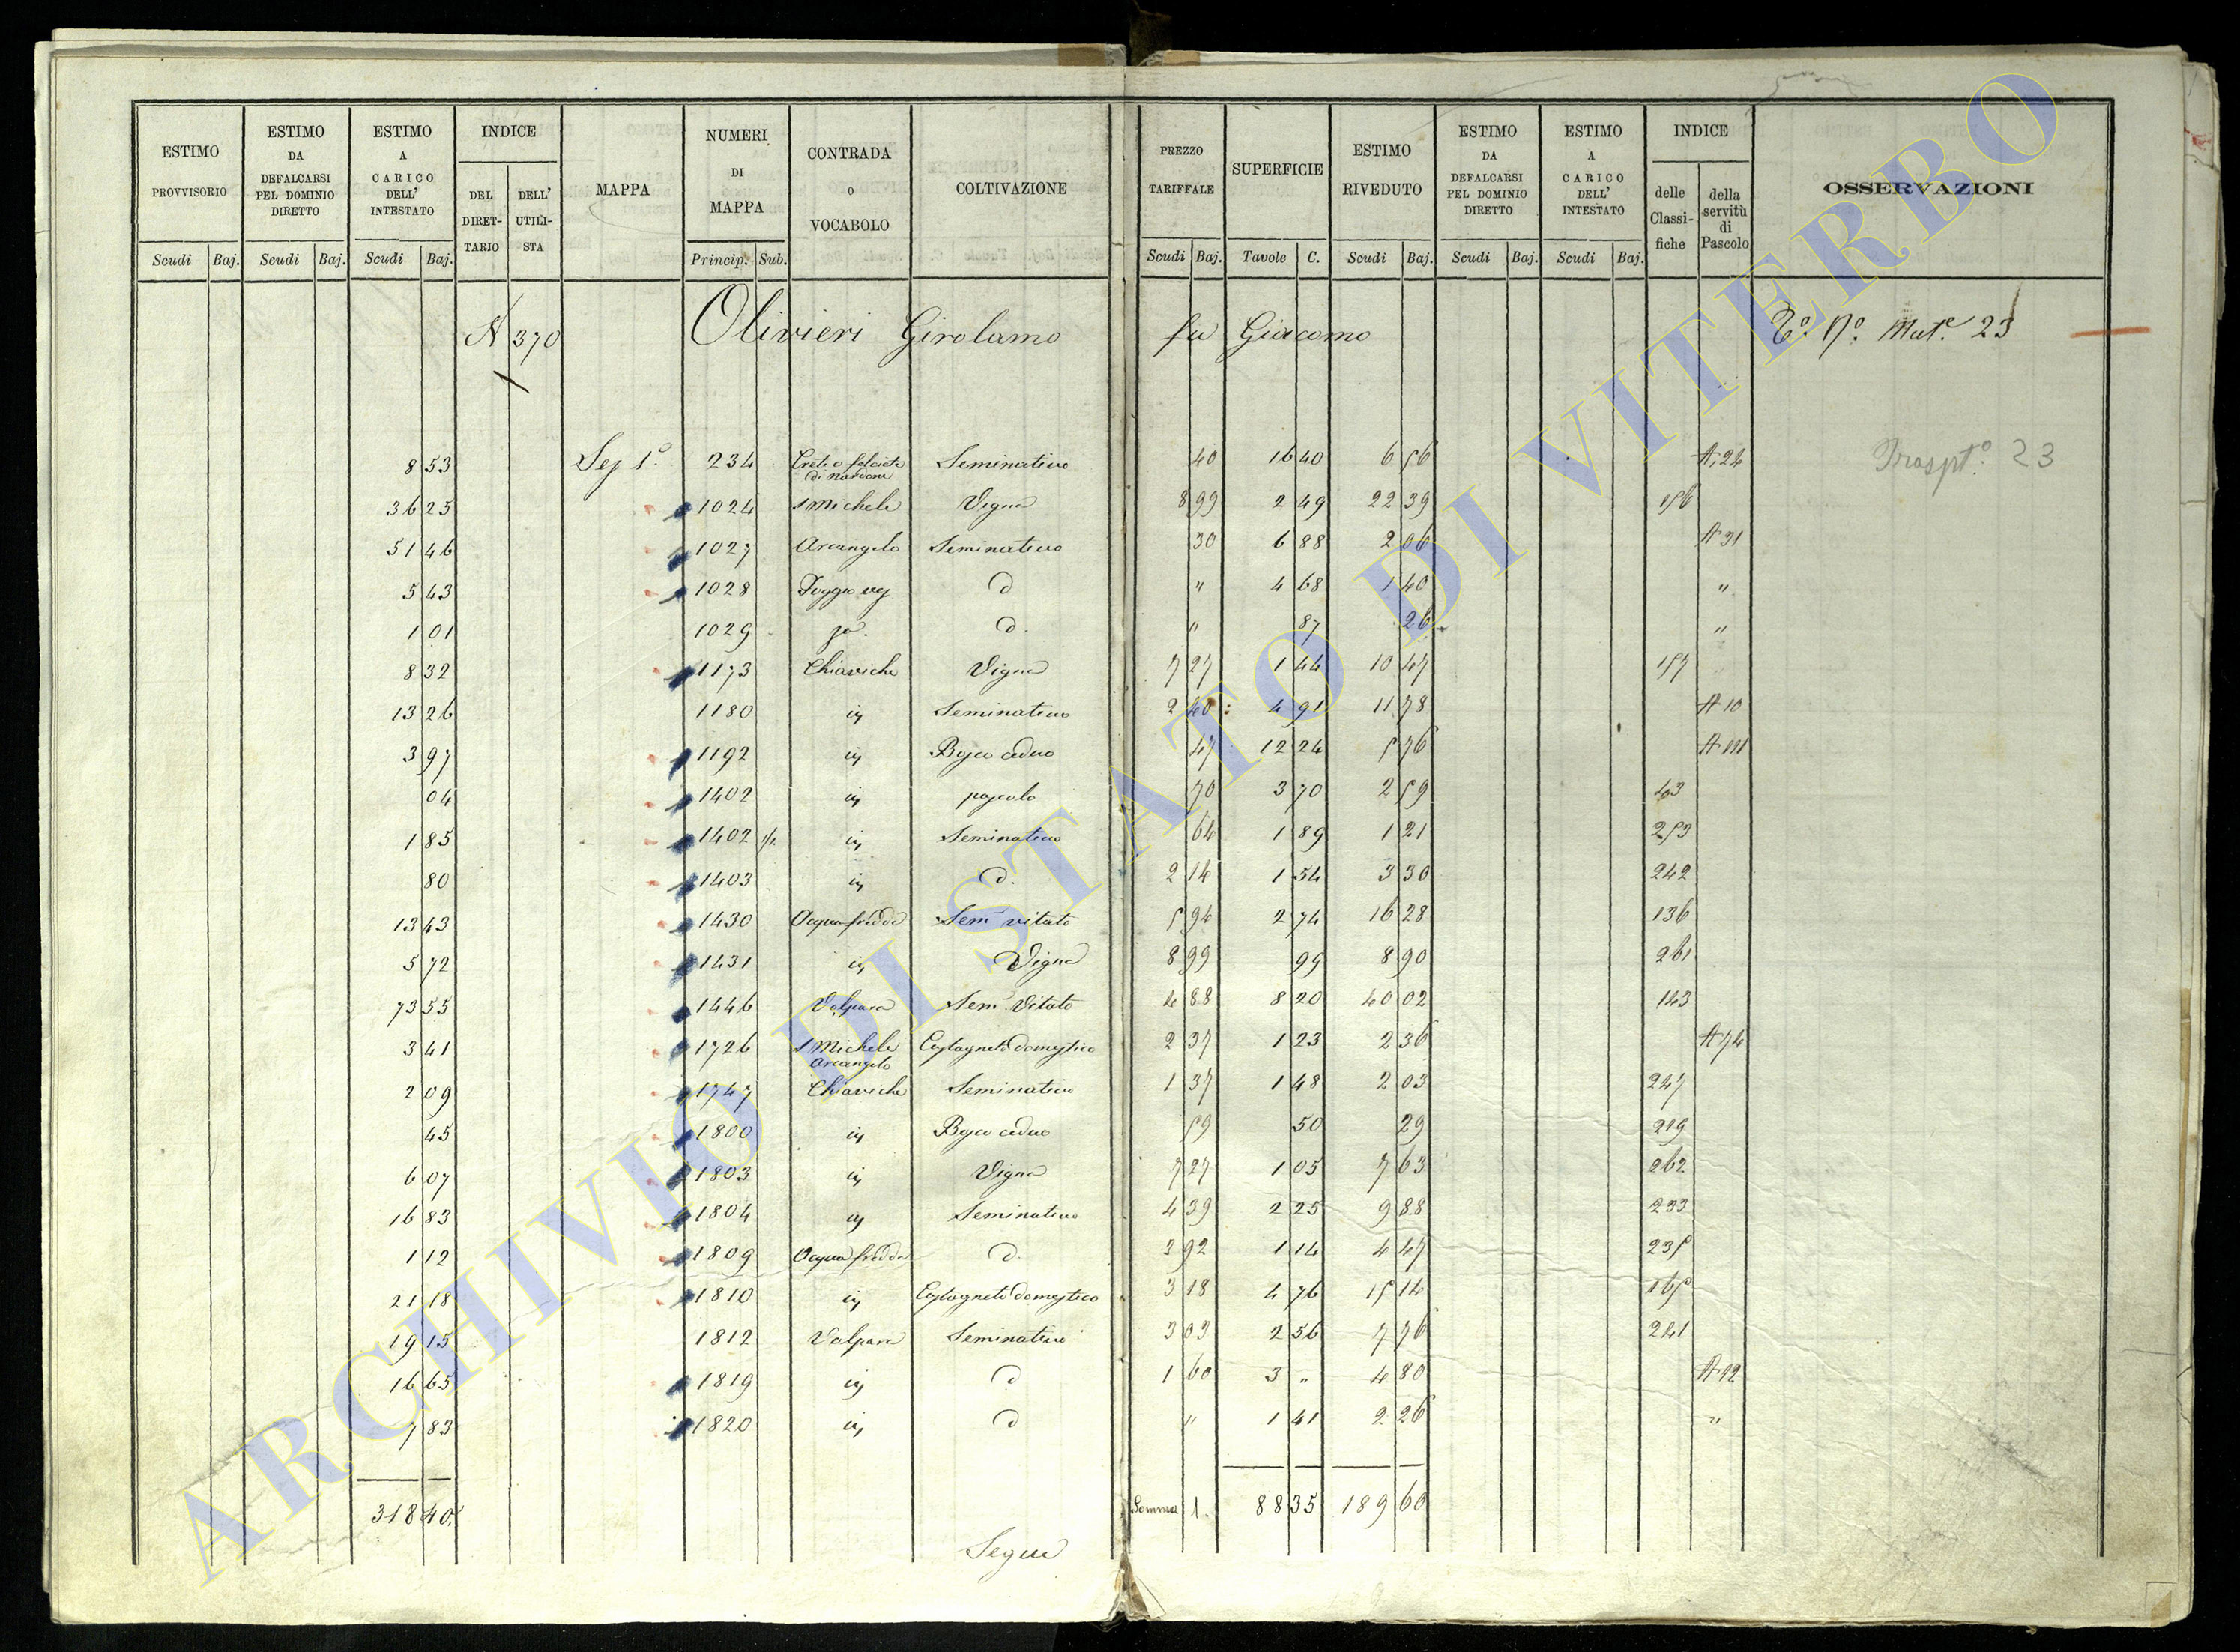 ESTIMO PROVVISORIO
ESTIMO DA DEFALCARSI PEL DOMINIO DIRETTO
ESTIMO A CARICO DELL' INTESTATO
INDICE
DEL DIRETTARIO
DELL' UTILISTA
MAPPA
NUMERI DI MAPPA
CONTRADA O VOCABOLO
COLTIVAZIONE
PREZZO TARIFFALE
SUPERFICIE
ESTIMO RIVEDUTO
ESTIMO DA DEFALCARSI PEL DOMINIO DIRETTO
ESTIMO A CARICO DELL' INTESTATO
INDICE
delle Classifiche
della servitù di Pascolo
OSSERVAZIONI
Scudi Baj. Scudi Baj. Scudi Baj. Princip. Sub. Scudi Baj. Tavole C. Scudi Baj. Scudi Baj. Scudi Baj.
N 370 Olivieri Girolamo fu Giacomo Mut.e 23
8 53 Sez 1a 234 Seminativo 40 16 40 6 56 A,24 Traspto 23
di
36 25 1024 S Michele Vigna 8 99 2 49 22 39 156
51 46 1027 Arcangelo Seminativo 30 6 88 2 06 A 31
5 43 1028 Poggio d " 4 68 1 40 "
1 01 1029 d. " 87 26 "
8 32 1173 Chiaviche Vigna 7 27 1 44 10 47 157
13 26 1180 iy Seminativo 2 40 4 91 11 78 A 10
3 97 1192 iy Bosco ceduo 47 12 24 5 76
04 1402 iy pascolo 70 3 70 2 59
1 85 1402 1/2 iy Seminativo 64 1 89 1 21 253
80 1403 iy d. 2 14 1 54 3 30 242
13 43 1430 Acqua fredda Sem vitato 5 94 2 74 16 28 136
5 72 1431 iy Vigna 8 99 99 8 90 261
73 55 1446 Valpara Sem Vitato 4 88 8 20 40 02 143
3 41 1726 S Michele Castagneto domestico 2 37 1 23 2 36 A 74
Arcangelo
2 09 1747 Chiaviche Seminativo 1 37 1 48 2 03 247
45 1800 iy Bosco ceduo 59 50 29 219
6 07 1803 iy Vigna 7 27 1 05 7 63 262
16 83 1804 iy Seminativo 4 39 2 25 9 88 233
1 12 1809 Acqua fredda d. 3 92 1 14 4 47 235
21 18 1810 iy Castagneto domestico 3 18 4 76 15 14 165
19 15 1812 Valpara Seminativo 3 03 2 56 7 76 241
16 65 1819 iy d 1 60 3 " 4 80 A 12
7 83 1820 iy d " 1 41 2 26 "
318 40 Somma 1. 88 35 189 60
Segue
ARCHIVIO DI STATO DI VITERBO